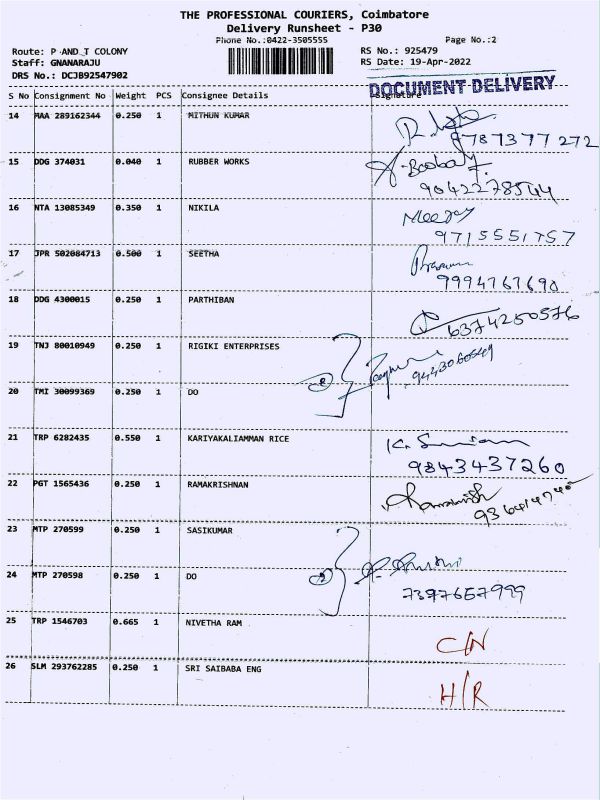 THE PROFESSIONAL COURIERS, Coimbatore
Delivery Runsheet - P30
Phone No.:0422-3505555
Page No.:2
Route: P AND T COLONY
RS No.: 925479
Staff: GNANARAJU
RS Date: 19-Apr-2022
DRS No.: DCJB92547902
DOCUMENT DELIVERY
S No Consignment No Weight PCS Consignee Details Signature
14 MAA 289162344 0.250 1 MITHUN KUMAR
9787377272
15 DDG 374031 0.040 1 RUBBER WORKS
9042278544
16 NTA 13085349 0.350 1 NIKILA
9715551757
17 JPR 502084713 0.500 1 SEETHA
9994767690
18 DDG 4300015 0.250 1 PARTHIBAN
6374250576
19 TNJ 80010949 0.250 1 RIGIKI ENTERPRISES
9443060549
20 TMI 30099369 0.250 1 DO
21 TRP 6282435 0.550 1 KARIYAKALIAMMAN RICE
9843437260
22 PGT 1565436 0.250 1 RAMAKRISHNAN
23 MTP 270599 0.250 1 SASIKUMAR
24 MTP 270598 0.250 1 DO
7397657999
25 TRP 1546703 0.665 1 NIVETHA RAM
C/N
26 SLM 293762285 0.250 1 SRI SAIBABA ENG
H/R